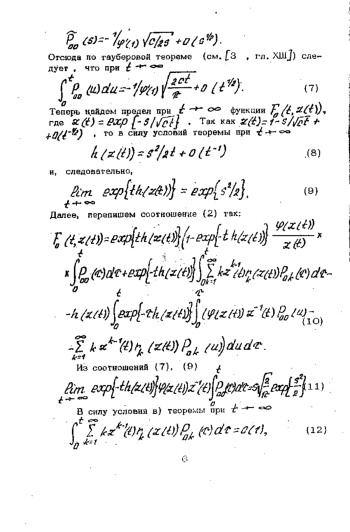 P̃₀₀(s) = -1/φ'(1) √c/2s + o(s^½).
Отсюда по тауберовой теореме (см. [3 , гл. XIII]) сле-
дует , что при t → ∞
∫₀ᵗ P₀₀(u)du = -1/φ'(1) √(2ct/π) + o(t^½). (7)
Теперь найдем предел при t → ∞ функции F₀(t,z(t)),
где z(t) = exp{-s/√ct} . Так как z(t) = 1-s/√ct +
+o(t^-½) , то в силу условий теоремы при t → ∞
h(z(t)) = s²/2t + o(t⁻¹) (8)
и, следовательно,
lim_{t→∞} exp{th(z(t))} = exp{s²/2}. (9)
Далее, перепишем соотношение (2) так:
F₀(t,z(t)) = exp{th(z(t))}(1-exp{-th(z(t))} φ(z(t))/z(t) ×
× ∫₀ᵗ P₀₀(τ)dτ + exp{-th(z(t))} ∫₀ᵗ Σ_{k=1}^∞ k z^{k-1}(t) r_k(z(t)) P_{0k}(τ)dτ -
-h(z(t)) ∫₀ᵗ exp{-τh(z(t))} ∫₀^τ (φ(z(t)) z⁻¹(t) P₀₀(u) - (10)
- Σ_{k=1}^∞ k z^{k-1}(t) r_k(z(t)) P_{0k}(u)) du dτ.
Из соотношений (7), (9)
lim_{t→∞} exp{-th(z(t))} φ(z(t)) z⁻¹(t) ∫₀ᵗ P₀₀(τ)dτ = s√(π/2) exp{-s²/2} (11)
В силу условия в) теоремы при t → ∞
∫₀ᵗ Σ_{k=1}^∞ k z^{k-1}(t) r_k(z(t)) P_{0k}(τ)dτ = o(1), (12)
6